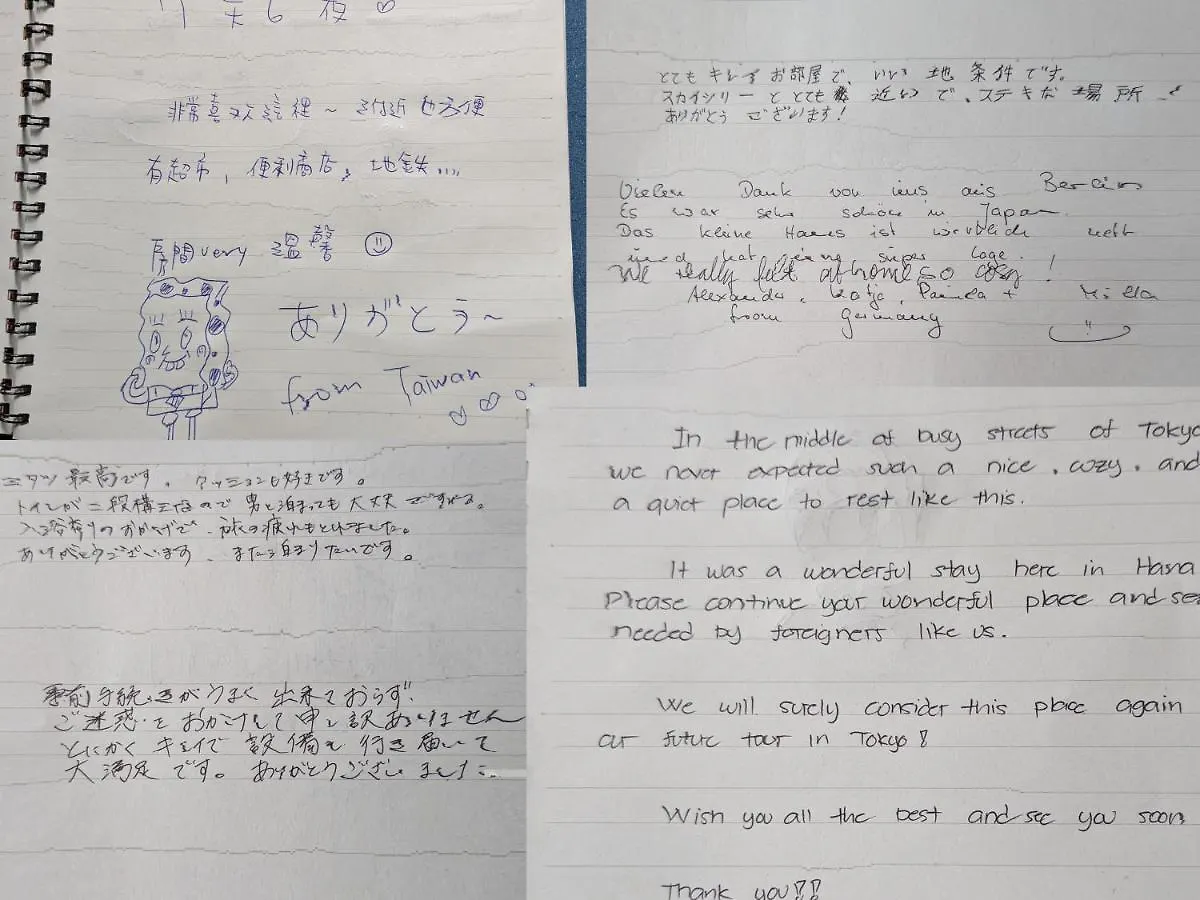 天6夜
非常喜欢這裡～附近也方便
有超市, 便利商店, 地鉄....
房間very 溫馨
ありがとう～
from Taiwan
とても キレイな お部屋で、いい 地 条件です。
スカイツリーと とても 近いで、ステキな 場所
ありがとう ございます!
Vielen Dank von uns aus Berlin
Es war sehr schön in Japan.
Das kleine Haus ist wirklich nett
und hat eine super Lage.
We really felt at home so cosy!
Alexander, Katja, +
from Germany
最高です。クッションも好きです。
トイレが二段構えなので 男と泊まっても大丈夫
入浴剤のおかげで、旅の疲れもとれました。
ありがとうございます、また泊まりたいです。
事前手続きがうまく出来ておらず、
ご迷惑をおかけして申し訳ありません
とにかくキレイで 設備も行き届いて
大満足です。ありがとうございました
In the middle of busy streets of Tokyo
we never expected such a nice, cozy, and
a quiet place to rest like this.
It was a wonderful stay here in Hana
Please continue your wonderful place and
needed by foreigners like us.
We will surely consider this place again
our future tour in Tokyo!
Wish you all the best and see you soon
Thank you!!